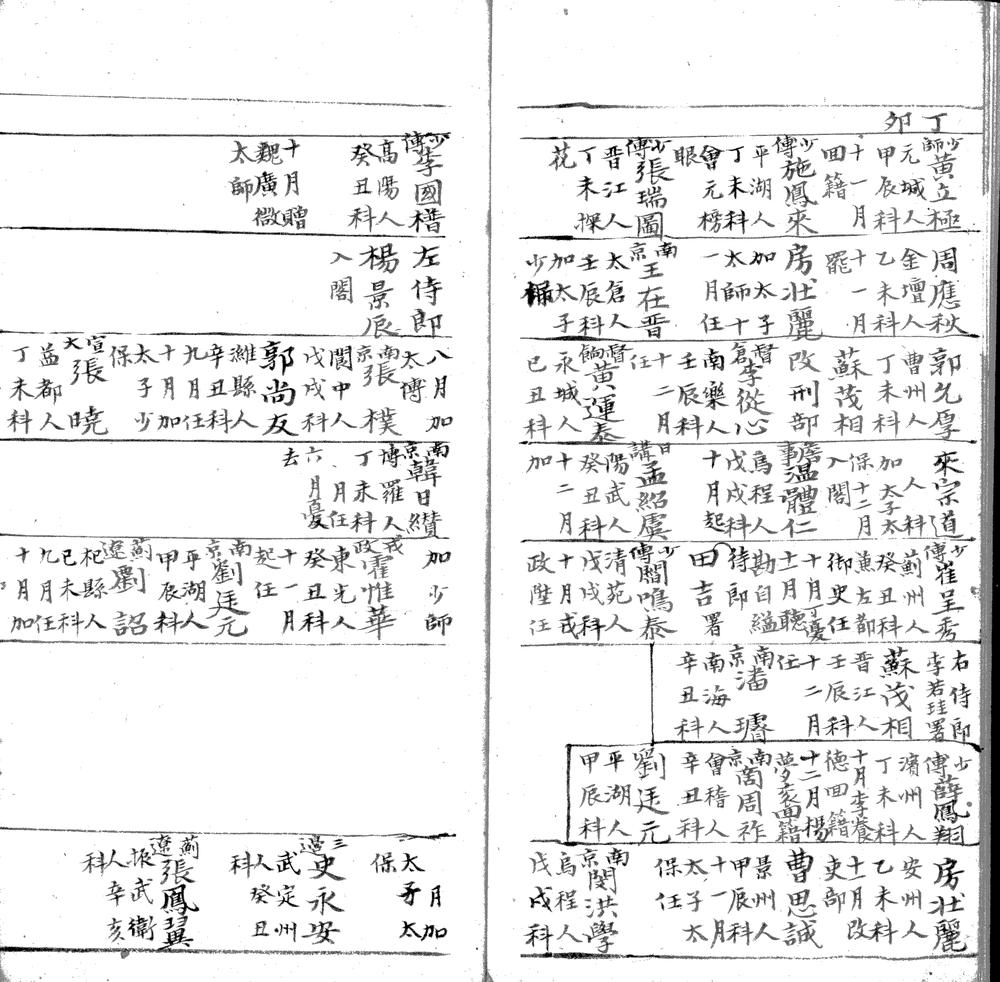 丁卯
少師黃立極
元城人
甲辰科
十一月
回籍
少傅施鳳來
平湖人
丁未科
會元榜
眼
少傅張瑞圖
晉江人
丁未探
花
周應秋
金壇人
乙未科
十一月
罷
房壯麗
加太子
太師十
一月任
南京王在晉
太倉人
壬辰科
加太子
少
郭允厚
曹州人
丁未科
蘇茂相
改刑部
督倉李從心
南樂人
壬辰科
十二月
任
督餉黃運泰
永城人
己丑科
來宗道
人科
加太子太
保十二月
入閣
詹事溫體仁
烏程人
戊戌科
十月起
日講孟紹虞
陽武人
癸丑科
十二月
加
少傅崔呈秀
薊州人
癸丑科
兼左都
御史任
十月丁憂
十一月聽
勘自縊
侍郎
田吉署
少傅閻鳴泰
清苑人
戊戌科
十月戎
政陞任
右侍郎
李若珪署
蘇茂相
晉江人
壬辰科
十二月
任
南京潘濬
南海人
辛丑科
少傅薛鳳翔
濱州人
丁未科
十月李養
德回籍
十二月楊
夢袞回籍
南京商周祚
會稽人
辛丑科
劉廷元
平湖人
甲辰科
房壯麗
安州人
乙未科
十一月改
吏部
曹思誠
景州人
甲辰科
十一月
太子太
保任
南京閔洪學
烏程人
戊戌科
少傅李國
高陽人
癸丑科
十月贈
魏廣微
太師
左侍郎
楊景辰
入閣
八月加
太傅
南京張樸
閬中人
戊戌科
郭尚友
濰縣人
辛丑科
九月任
十月加
太子少
保
宣大張曉
益都人
丁未科
南京韓日纘
博羅人
丁未科
月任
六月憂
去
加少師
戎政霍惟華
東光人
癸丑科
十一月
起任
南京劉廷元
平湖人
甲辰科
薊遼劉詔
杞縣人
己未科
九月任
十月加
月加
太子太
保
三邊史永安
武定州
人癸丑
科
薊遼張鳳翼
振武衛
人辛亥
科